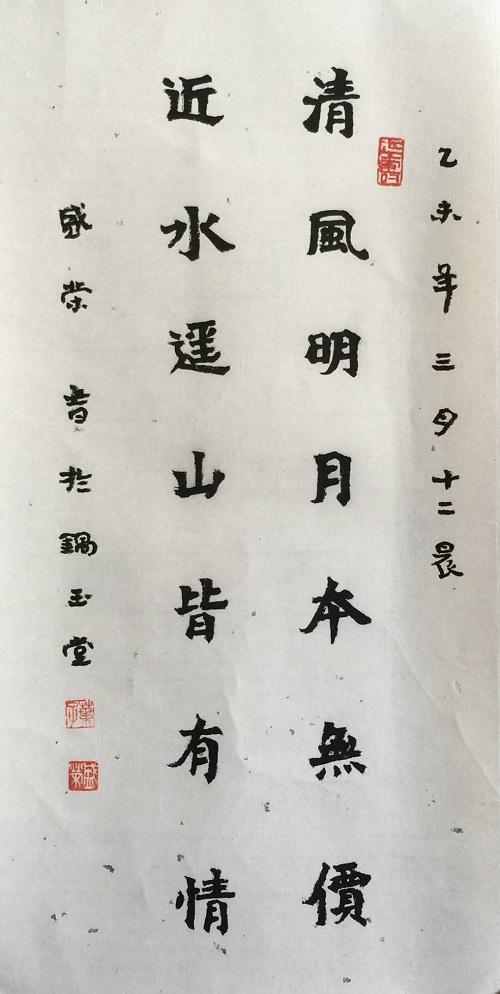 乙未年三月十二晨
清風明月本無價
近水遥山皆有情
盛荣 書於鍋玉堂